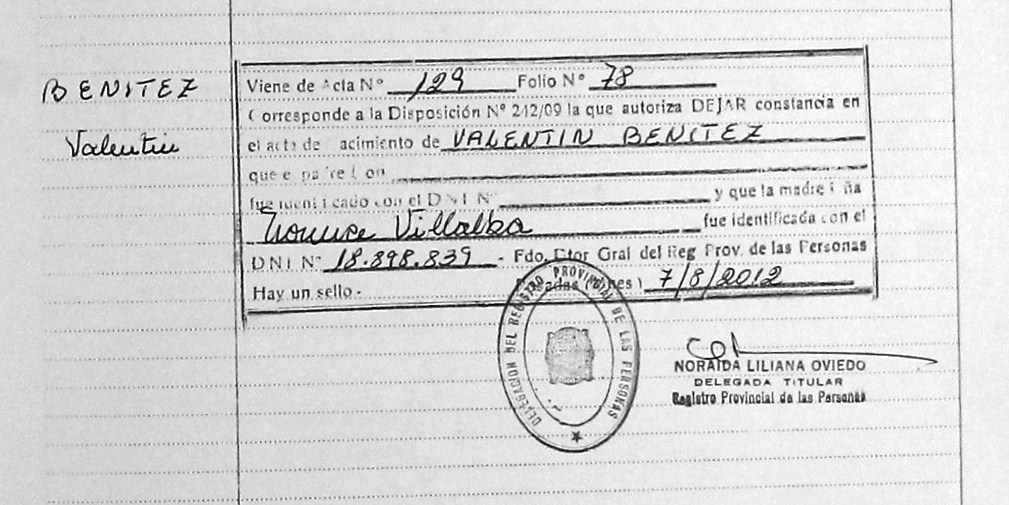 BENITEZ
Valentin
Viene de Acta Nº 129 Folio Nº 78
Corresponde a la Disposición Nº 242/09 la que autoriza DEJAR constancia en
el acta de acimiento de VALENTIN BENITEZ
que e pa re on
fue identi cado con el DNI N y que la madre ña
Villalba fue identificada con el
DNI Nº 18.898.839 - Fdo. Dtor Gral del Reg Prov. de las Personas
Hay un sello - adas ( nes ) 7/8/2012
DELEGACION DEL REGISTRO PROVINCIAL DE LAS PERSONAS
NORAIDA LILIANA OVIEDO
DELEGADA TITULAR
Registro Provincial de las Personas